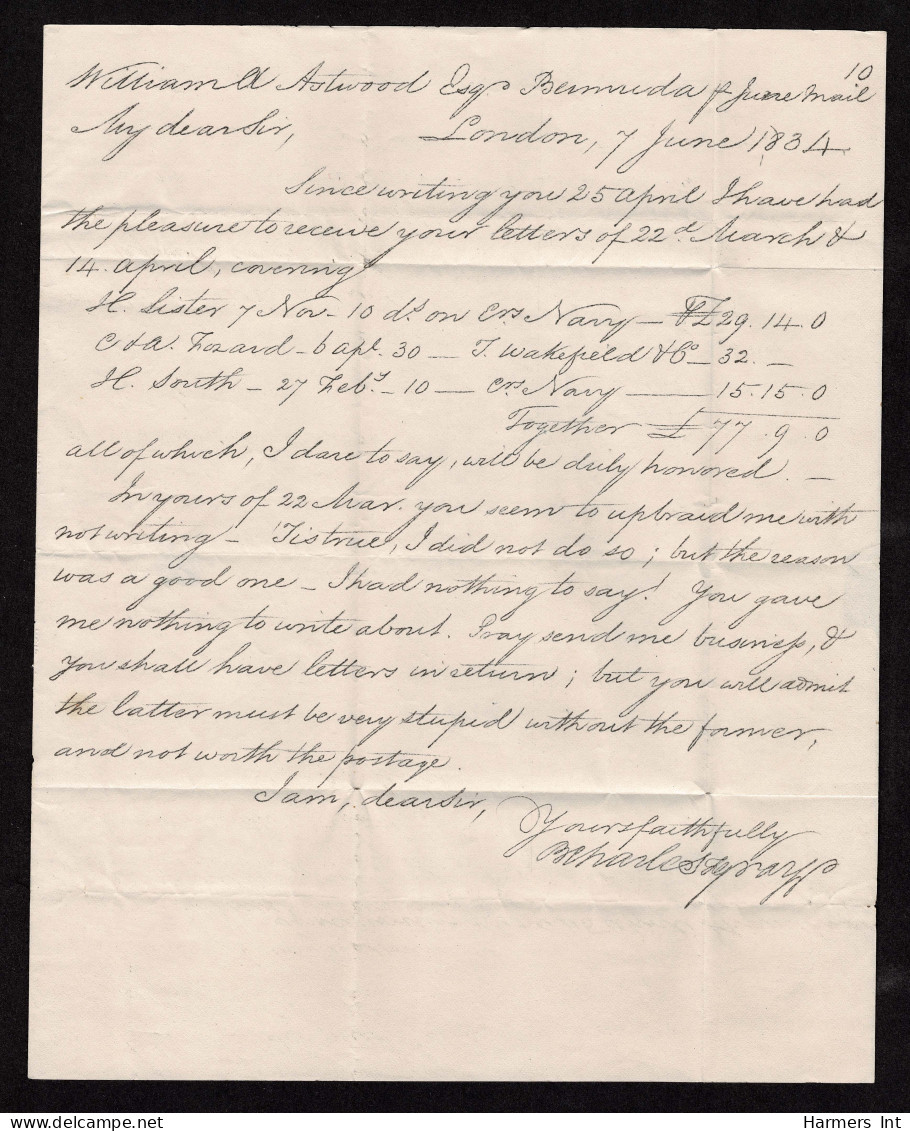 10
William Astwood Esqr Bermuda June Mail
My dear Sir, London, 7 June 1834.
Since writing you 25 April I have had
the pleasure to receive your letters of 22d March &
14 April, covering
H. Lister 7 Nov - 10 ds on Crs Navy - £29.14.0
C & A. Fozard - 6 Apl. 30 - T. Wakefield & Co - 32. -
H. South - 27 Feby - 10 - Crs Navy - 15.15.0
Together - £77.9.0
all of which, I dare to say, will be duly honored. -
In yours of 22 Mar. you seem to upbraid me with
not writing - 'Tis true, I did not do so; but the reason
was a good one - I had nothing to say! You gave
me nothing to write about. Pray send me business, &
you shall have letters in return; but you will admit
the latter must be very stupid without the former,
and not worth the postage.
I am, dear Sir,
Yours faithfully
Harmers Int